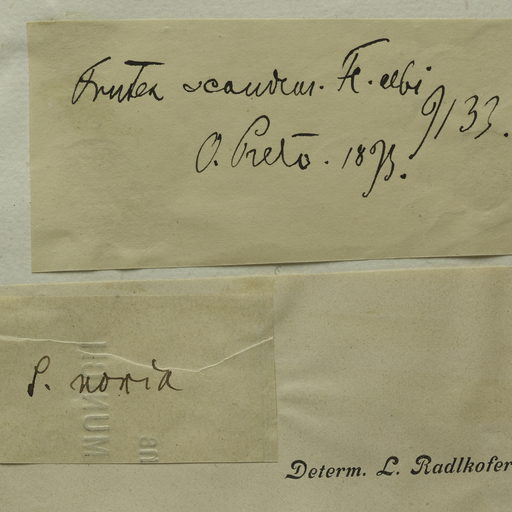 Frutex scandens. Fl. albi
9/133.
O. Preto. 1893.
S. noxia
Determ. L. Radlkofer